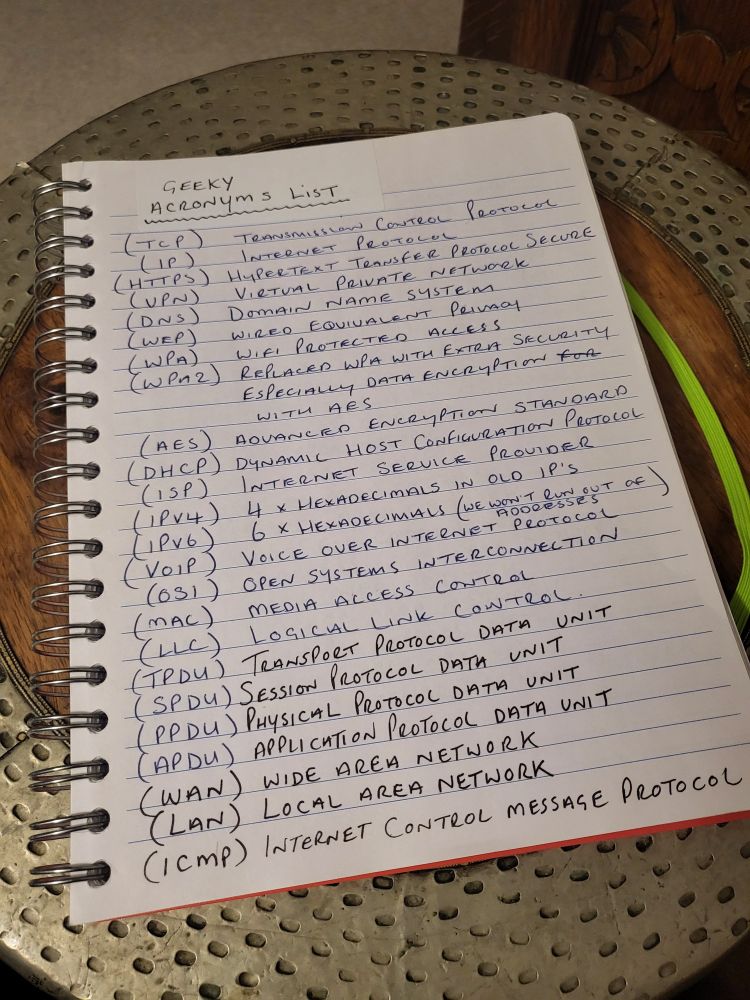 GEEKY
ACRONYMS LIST
(TCP) TRANSMISSION CONTROL PROTOCOL
(IP) INTERNET PROTOCOL
(HTTPS) HYPERTEXT TRANSFER PROTOCOL SECURE
(VPN) VIRTUAL PRIVATE NETWORK
(DNS) DOMAIN NAME SYSTEM
(WEP) WIRED EQUIVALENT PRIVACY
(WPA) WIFI PROTECTED ACCESS
(WPA2) REPLACED WPA WITH EXTRA SECURITY
ESPECIALLY DATA ENCRYPTION FOR
WITH AES
(AES) ADVANCED ENCRYPTION STANDARD
(DHCP) DYNAMIC HOST CONFIGURATION PROTOCOL
(ISP) INTERNET SERVICE PROVIDER
(IPV4) 4 x HEXADECIMALS IN OLD IP'S
(IPV6) 6 x HEXADECIMALS (WE WON'T RUN OUT OF
ADDRESSES)
(VOIP) VOICE OVER INTERNET PROTOCOL
(OSI) OPEN SYSTEMS INTERCONNECTION
(MAC) MEDIA ACCESS CONTROL
(LLC) LOGICAL LINK CONTROL.
(TPDU) TRANSPORT PROTOCOL DATA UNIT
(SPDU) SESSION PROTOCOL DATA UNIT
(PPDU) PHYSICAL PROTOCOL DATA UNIT
(APDU) APPLICATION PROTOCOL DATA UNIT
(WAN) WIDE AREA NETWORK
(LAN) LOCAL AREA NETWORK
(ICMP) INTERNET CONTROL MESSAGE PROTOCOL